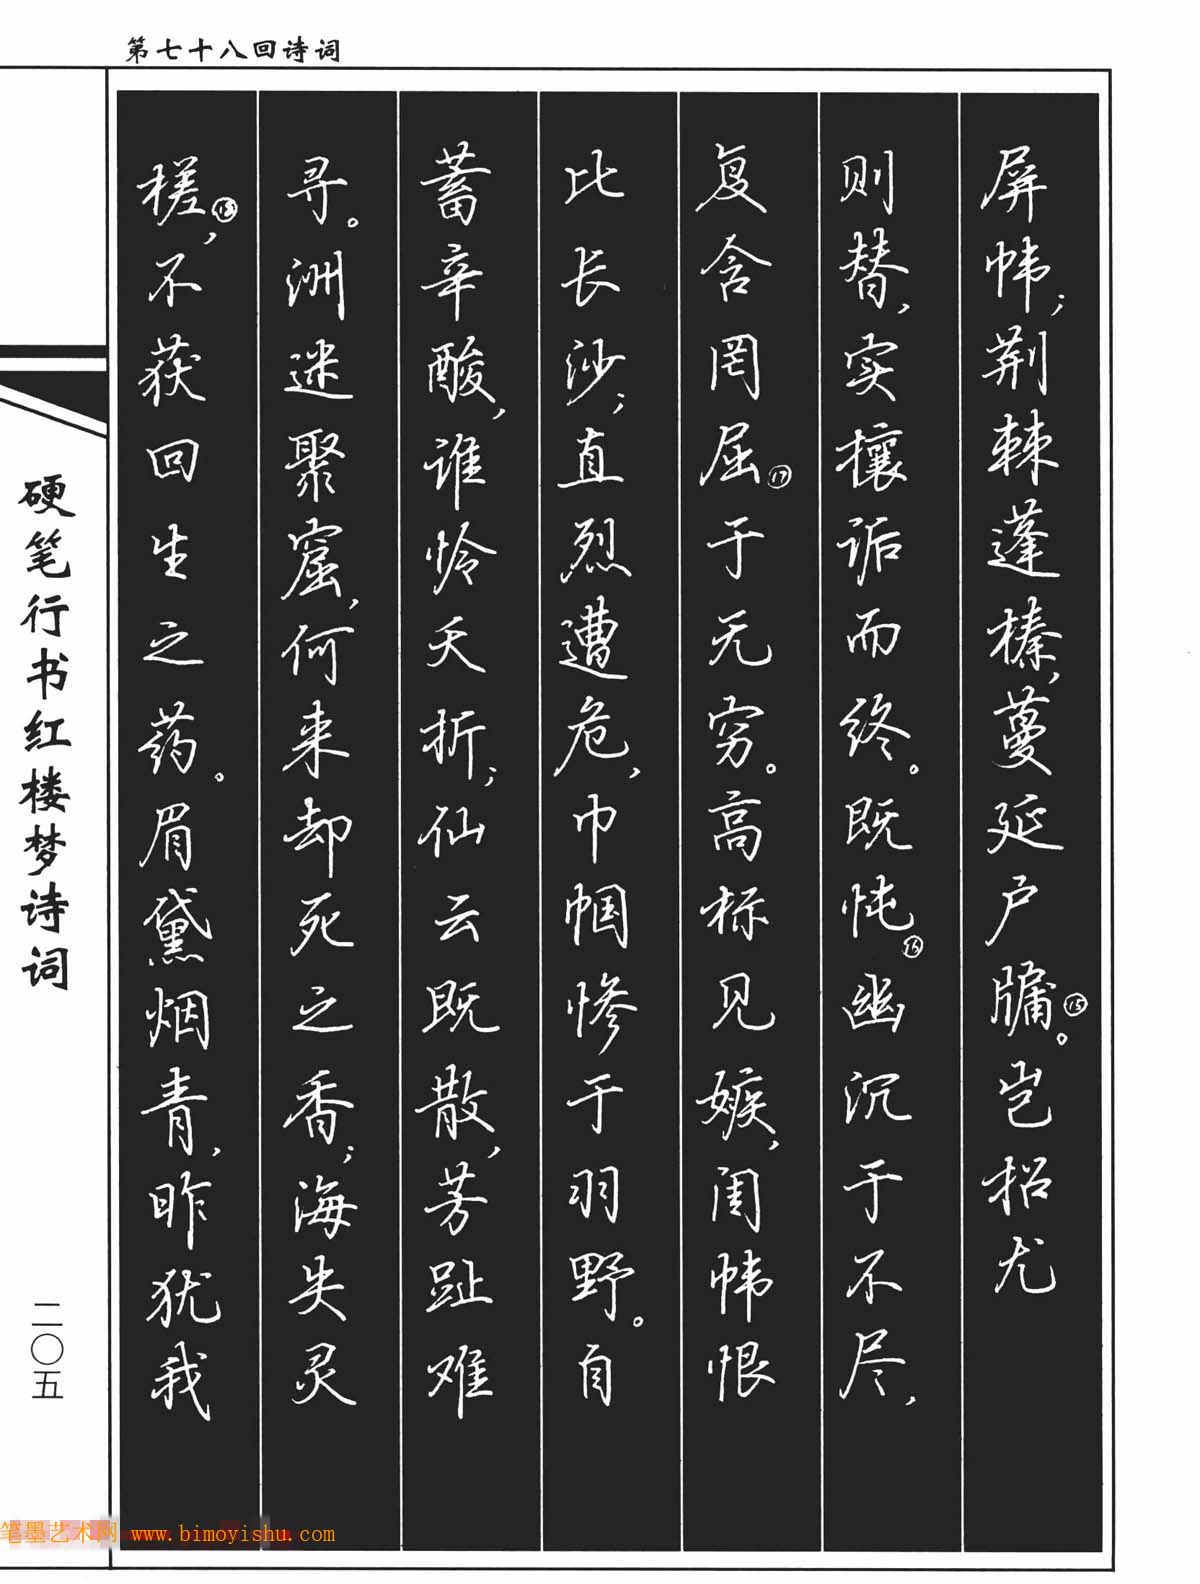 第七十八回诗词
屏帏；荆棘蓬榛，蔓延户牖⑮。岂招尤
则替，实攘诟而终。既忳⑯幽沉于不尽，
复含罔屈⑰于无穷。高标见嫉，闺帏恨
比长沙；直烈遭危，巾帼惨于羽野。自
蓄辛酸，谁怜夭折；仙云既散，芳趾难
寻。洲迷聚窟，何来却死之香；海失灵
槎⑱，不获回生之药。眉黛烟青，昨犹我
硬笔行书红楼梦诗词
二〇五
笔墨艺术网 www.bimoyishu.com